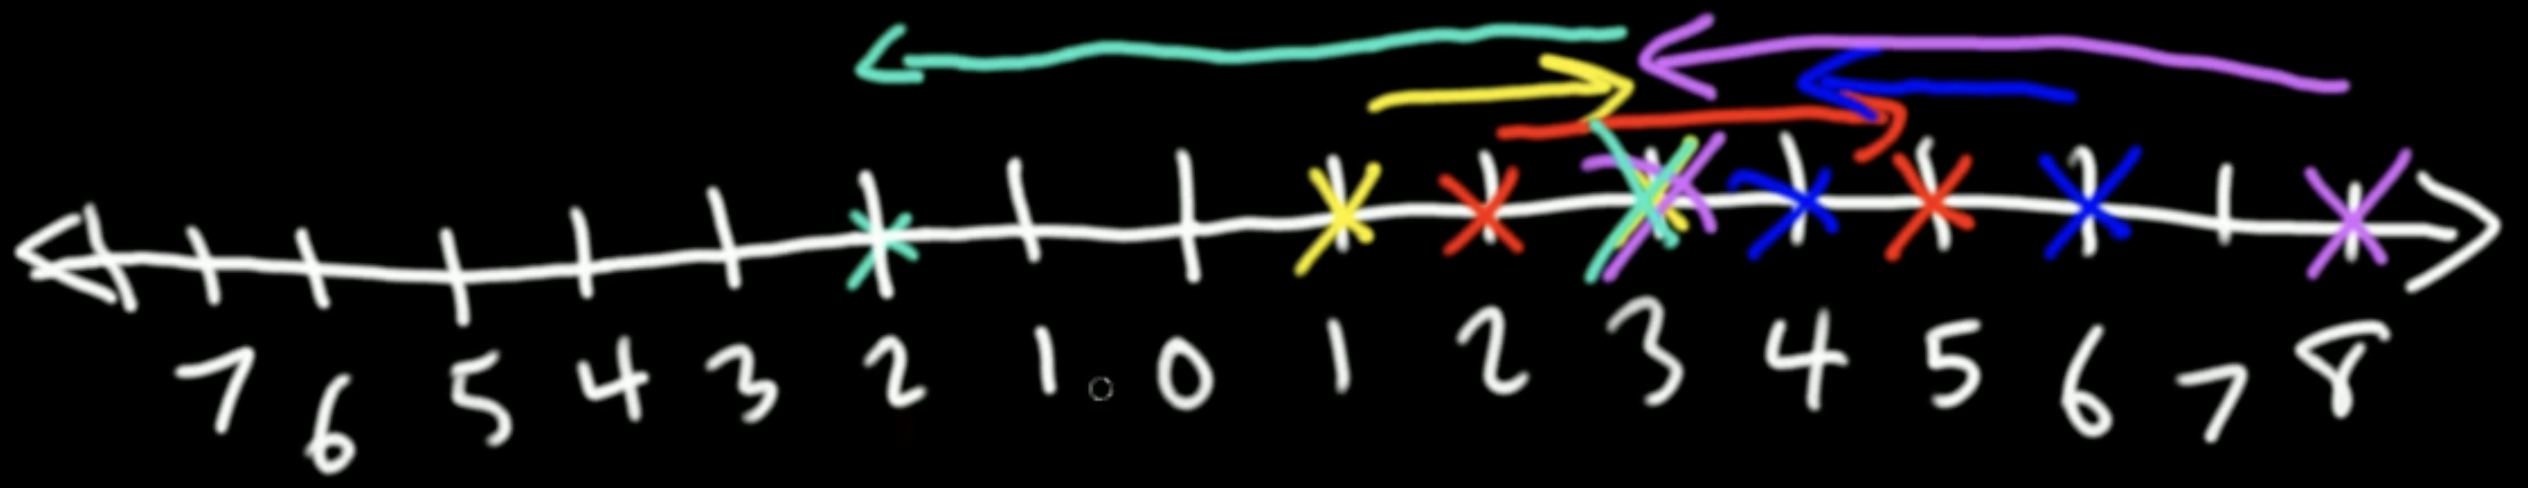 7 6 5 4 3 2 1 0 1 2 3 4 5 6 7 8